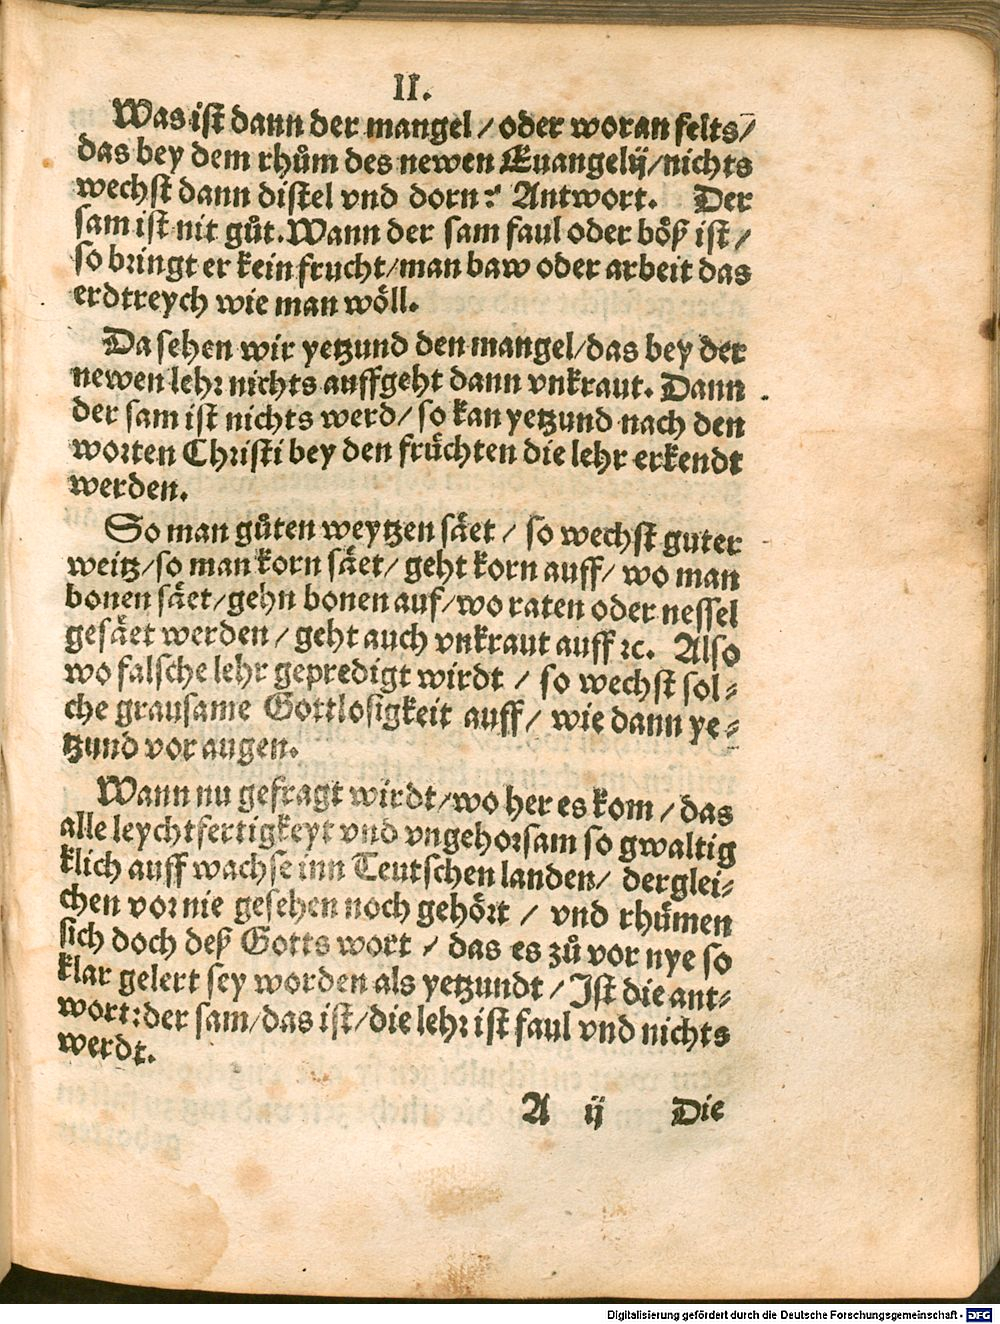 II.
Was ist dann der mangel / oder woran felts /
das bey dem rhům des newen Euangelij / nichts
wechst dann distel vnd dorn? Antwort. Der
sam ist nit gůt. Wann der sam faul oder böß ist /
so bringt er kein frucht / man baw oder arbeit das
erdtreych wie man wöll.
Da sehen wir yetzund den mangel / das bey der
newen lehꝛ nichts auffgeht dann vnkraut. Dann
der sam ist nichts werd / so kan yetzund nach den
woꝛten Chꝛisti bey den früchten die lehr erkendt
werden.
So man gůten weytzen säet / so wechst guter
weitz / so man korn säet / geht korn auff / wo man
bonen säet / gehn bonen auf / wo raten oder nessel
gesäet werden / geht auch vnkraut auff ꝛc. Also
wo falsche lehr gepredigt wirdt / so wechst sol⸗
che grausame Gottlosigkeit auff / wie dann ye⸗
tzund vor augen.
Wann nu gefragt wirdt / wo her es kom / das
alle leychtfertigkeyt vnd vngehoꝛsam so gwaltig
klich auff wachse inn Teutschen landen / derglei⸗
chen voꝛ nie gesehen noch gehöꝛt / vnd rhümen
sich doch deß Gotts wort / das es zů vor nye so
klar gelert sey worden als yetzundt / Ist die ant⸗
wort: der sam / das ist / die lehꝛ ist faul vnd nichts
werdt.
A ij Die
Digitalisierung gefördert durch die Deutsche Forschungsgemeinschaft - DFG